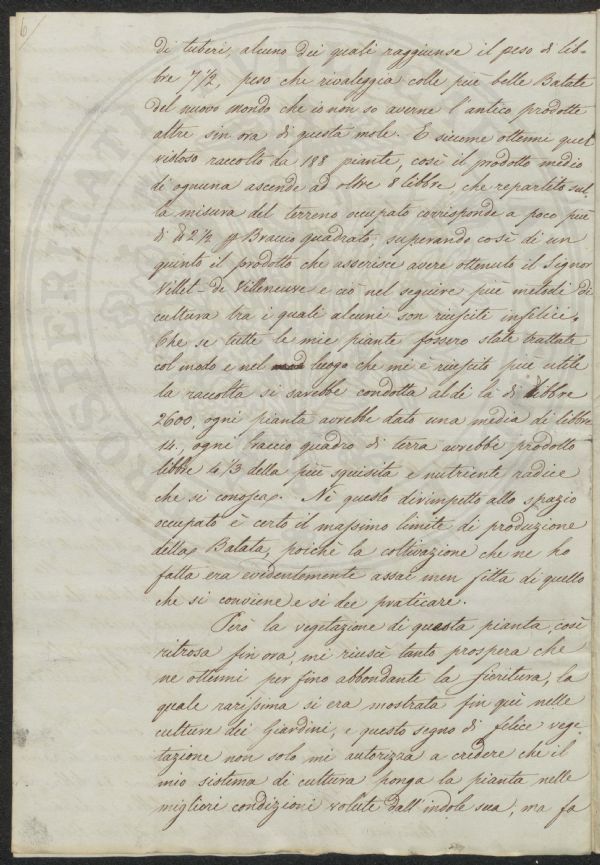 6/
di tuberi, alcuno dei quali raggiunse il peso di lib-
bre 7 1/2, peso che rivaleggia colle più belle Batate
del nuovo mondo che io non so averne l'antico prodotte
altre sin ora di questa mole. E siccome ottenni quel
vistoso raccolto da 188 piante, così il prodotto medio
di ognuna ascende ad oltre 8 libbre, che repartito sul-
la misura del terreno occupato corrisponde a poco più
di 2 1/2 Braccio quadrato, superando così di un
quinto il prodotto che asserisce avere ottenuto il Signor
Villet-de Villeneuve e ciò nel seguire più metodi di
cultura tra i quali alcuni son riusciti infelici.
Che se tutte le mie piante fossero state trattate
col modo e nel luogo che mi è riuscito più utile
la raccolta si sarebbe condotta al di là di libbre
2600, ogni pianta avrebbe dato una media di libbre
14., ogni braccio quadro di terra avrebbe prodotto
libbre 4 1/3 della più squisita e nutriente radice
che si conosca. Nè questo dirimpetto allo spazio
occupato è certo il massimo limite di produzione
della Batata, poichè la coltivazione che ne ho
fatta era evidentemente assai men fitta di quello
che si conviene e si dee praticare.
Però la vegetazione di questa pianta, così
ritrosa fin ora, mi riuscì tanto prospera che
ne ottenni per fino abbondante la fioritura, la
quale rarissima si era mostrata fin quì nelle
culture dei Giardini, e questo segno di felice vege-
tazione non solo mi autorizza a credere che il
mio sistema di cultura ponga la pianta nelle
migliori condizioni volute dall'indole sua, ma fa